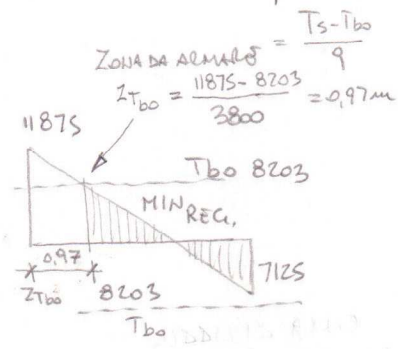 ZONA DA ARMARE = Ts-Tbo / q
ZTbo = 11875-8203 / 3800 = 0,97 m
11875
Tbo 8203
MIN REG.
0,97
7125
ZTbo 8203
Tbo